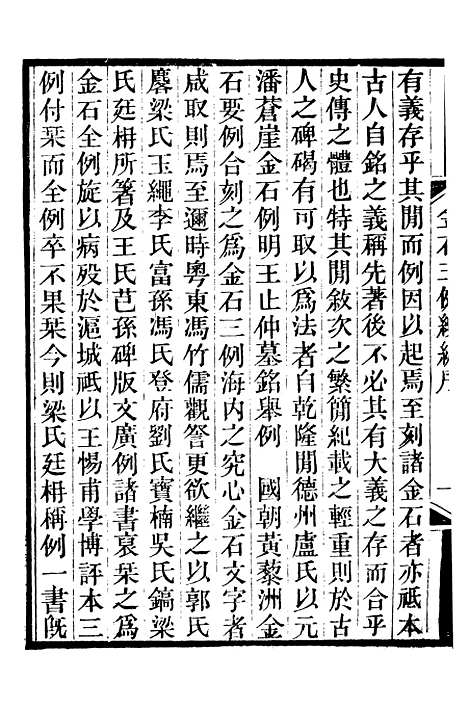 有義存乎其閒而例因以起焉至刻諸金石者亦祗本
古人自銘之義稱先著後不必其有大義之存而合乎
史傳之體也特其閒敘次之繁簡紀載之輕重則於古
人之碑碣有可取以為法者自乾隆閒德州盧氏以元
潘蒼崖金石例明王止仲墓銘舉例　國朝黃藜洲金
石要例合刻之為金石三例海内之究心金石文字者
咸取則焉至邇時粵東馮竹儒觀詧更欲繼之以郭氏
麐梁氏玉繩李氏富孫馮氏登府劉氏寳楠吳氏鎬梁
氏廷枏所箸及王氏芑孫碑版文廣例諸書裒栞之為
金石全例旋以病殁於滬城祗以王惕甫學博評本三
例付栞而全例卒不果栞今則梁氏廷枏稱例一書旣
金石三例續編序
一